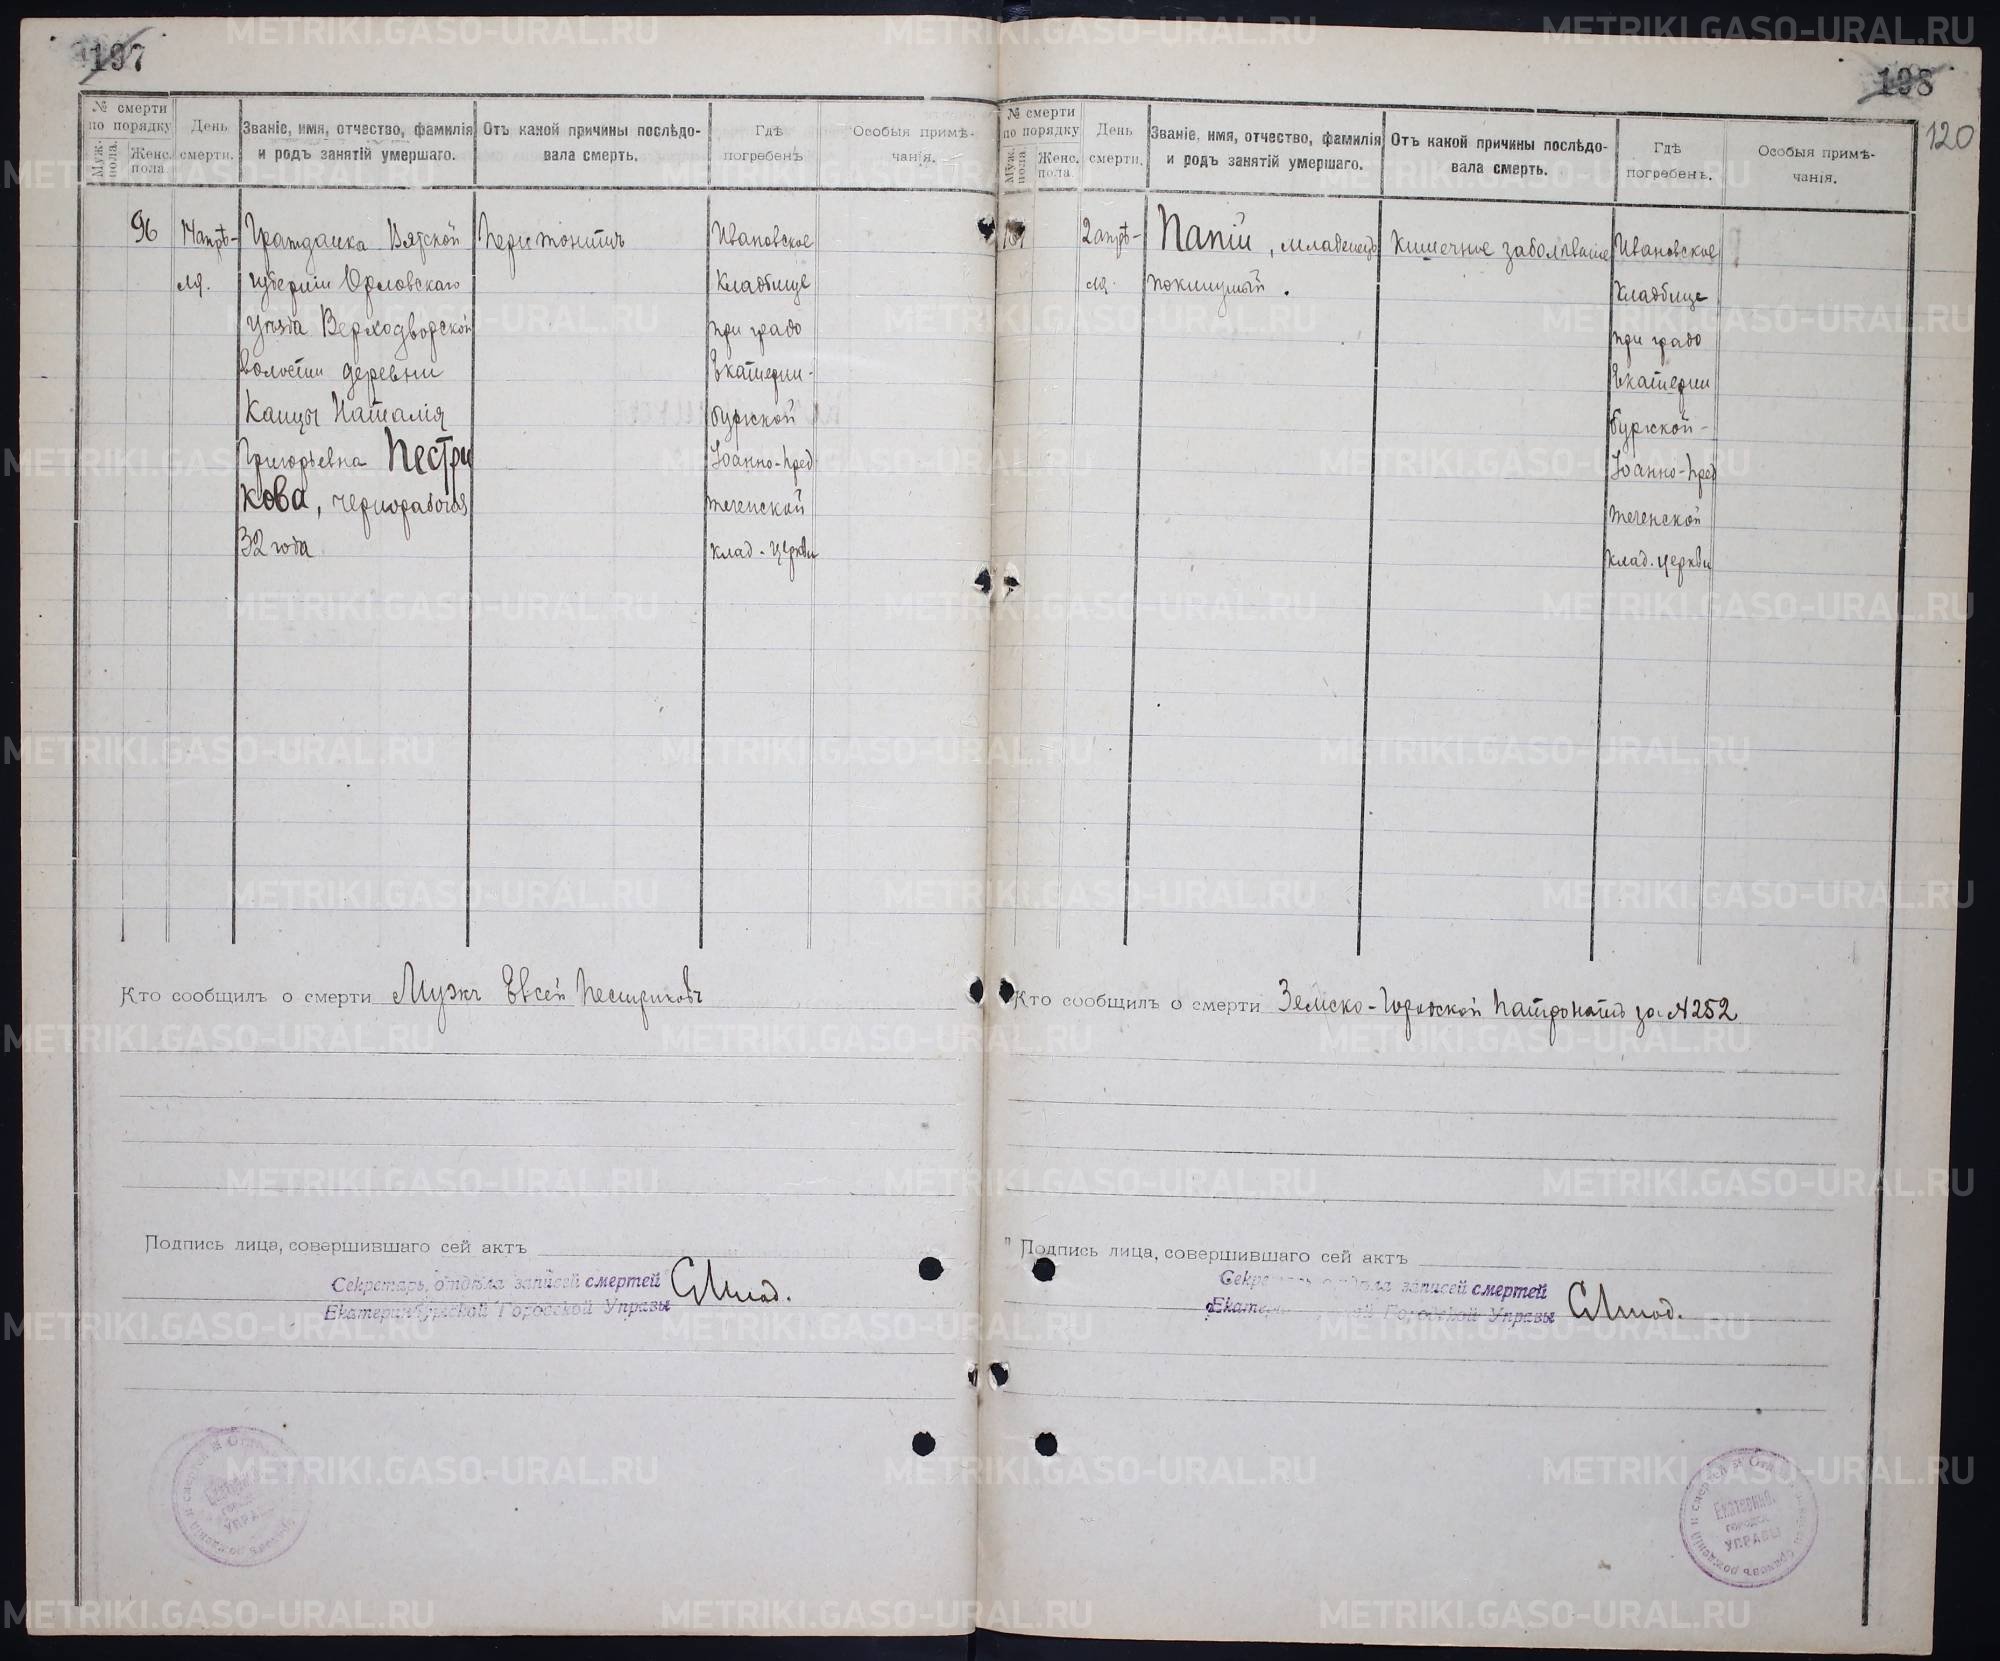 197
№ смерти
по порядку
Муж.
пола.
Женс.
пола
День
смерти.
Званіе, имя, отчество, фамилія
и родъ занятій умершаго.
Отъ какой причины послѣдо-
вала смерть.
Гдѣ
погребенъ
Особыя примѣ-
чанія.
96
апрѣ-
ля.
Гражданка Вятской
губерніи Орловскаго
уѣзда Верходворской
волости деревни
Канцы Наталія
Григорьевна Пестри
кова, чернорабочая
32 года
Перитонитъ
Ивановское
кладбище
при градо
Екатерин-
бургской
Іоанно-Пред
теченской
клад. церкви
Кто сообщилъ о смерти Мужъ Евсей Пестриковъ
Подпись лица, совершившаго сей актъ
Секретарь, отдѣла записей смертей
Екатеринбургской Городской Управы
198
120
№ смерти
по порядку
Муж.
пола.
Женс.
пола.
День
смерти.
Званіе, имя, отчество, фамилія
и родъ занятій умершаго.
Отъ какой причины послѣдо-
вала смерть.
Гдѣ
погребенъ.
Особыя примѣ-
чанія.
2 апрѣ-
ля.
Папій, младенецъ
покинутый.
Кишечное заболѣваніе
Ивановское
кладбище
при градо
Екатерин
бургской-
Іоанно-Пред
теченской
клад. церкви
Кто сообщилъ о смерти Земско-Городской Патронатъ за № 252
Подпись лица, совершившаго сей актъ
Секретарь отдѣла записей смертей
Городской Управы
Екатеринб.
УПРАВЫ
METRIKI.GASO-URAL.RU